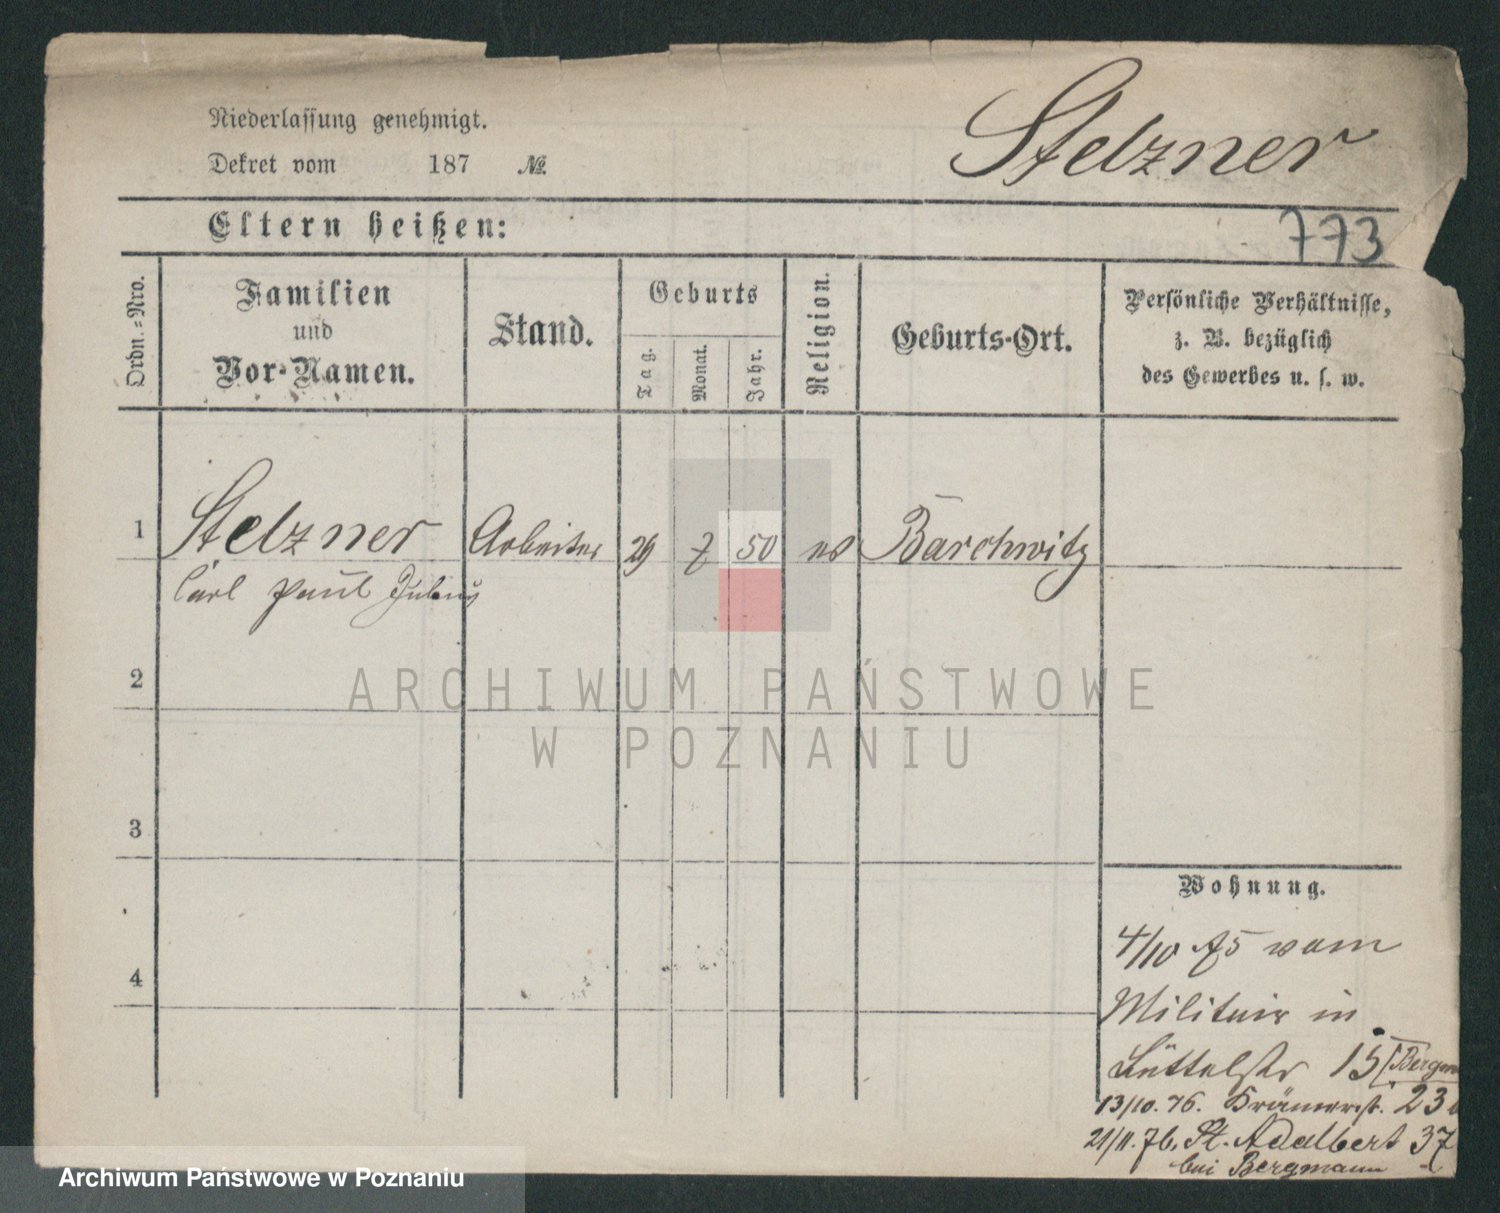 Niederlassung genehmigt.
Dekret vom 187 No.
Stelzner
Eltern heißen:
773
Ordn.-Nro.
Familien
und
Vor-Namen.
Stand.
Geburts
Tag.
Monat.
Jahr.
Religion.
Geburts-Ort.
Persönliche Verhältnisse,
z. B. bezüglich
des Gewerbes u. s. w.
1 Stelzner Arbeiter 29 7 50 ev Barchwitz
Carl Paul Julius
2
ARCHIWUM PAŃSTWOWE
W POZNANIU
3
Wohnung.
4/10 75 vom
4
Militair in
15 Bergm
13/10. 76. Krämerst. 23
21/11. 76. St. Adalbert 37
bei Bergmann
Archiwum Państwowe w Poznaniu